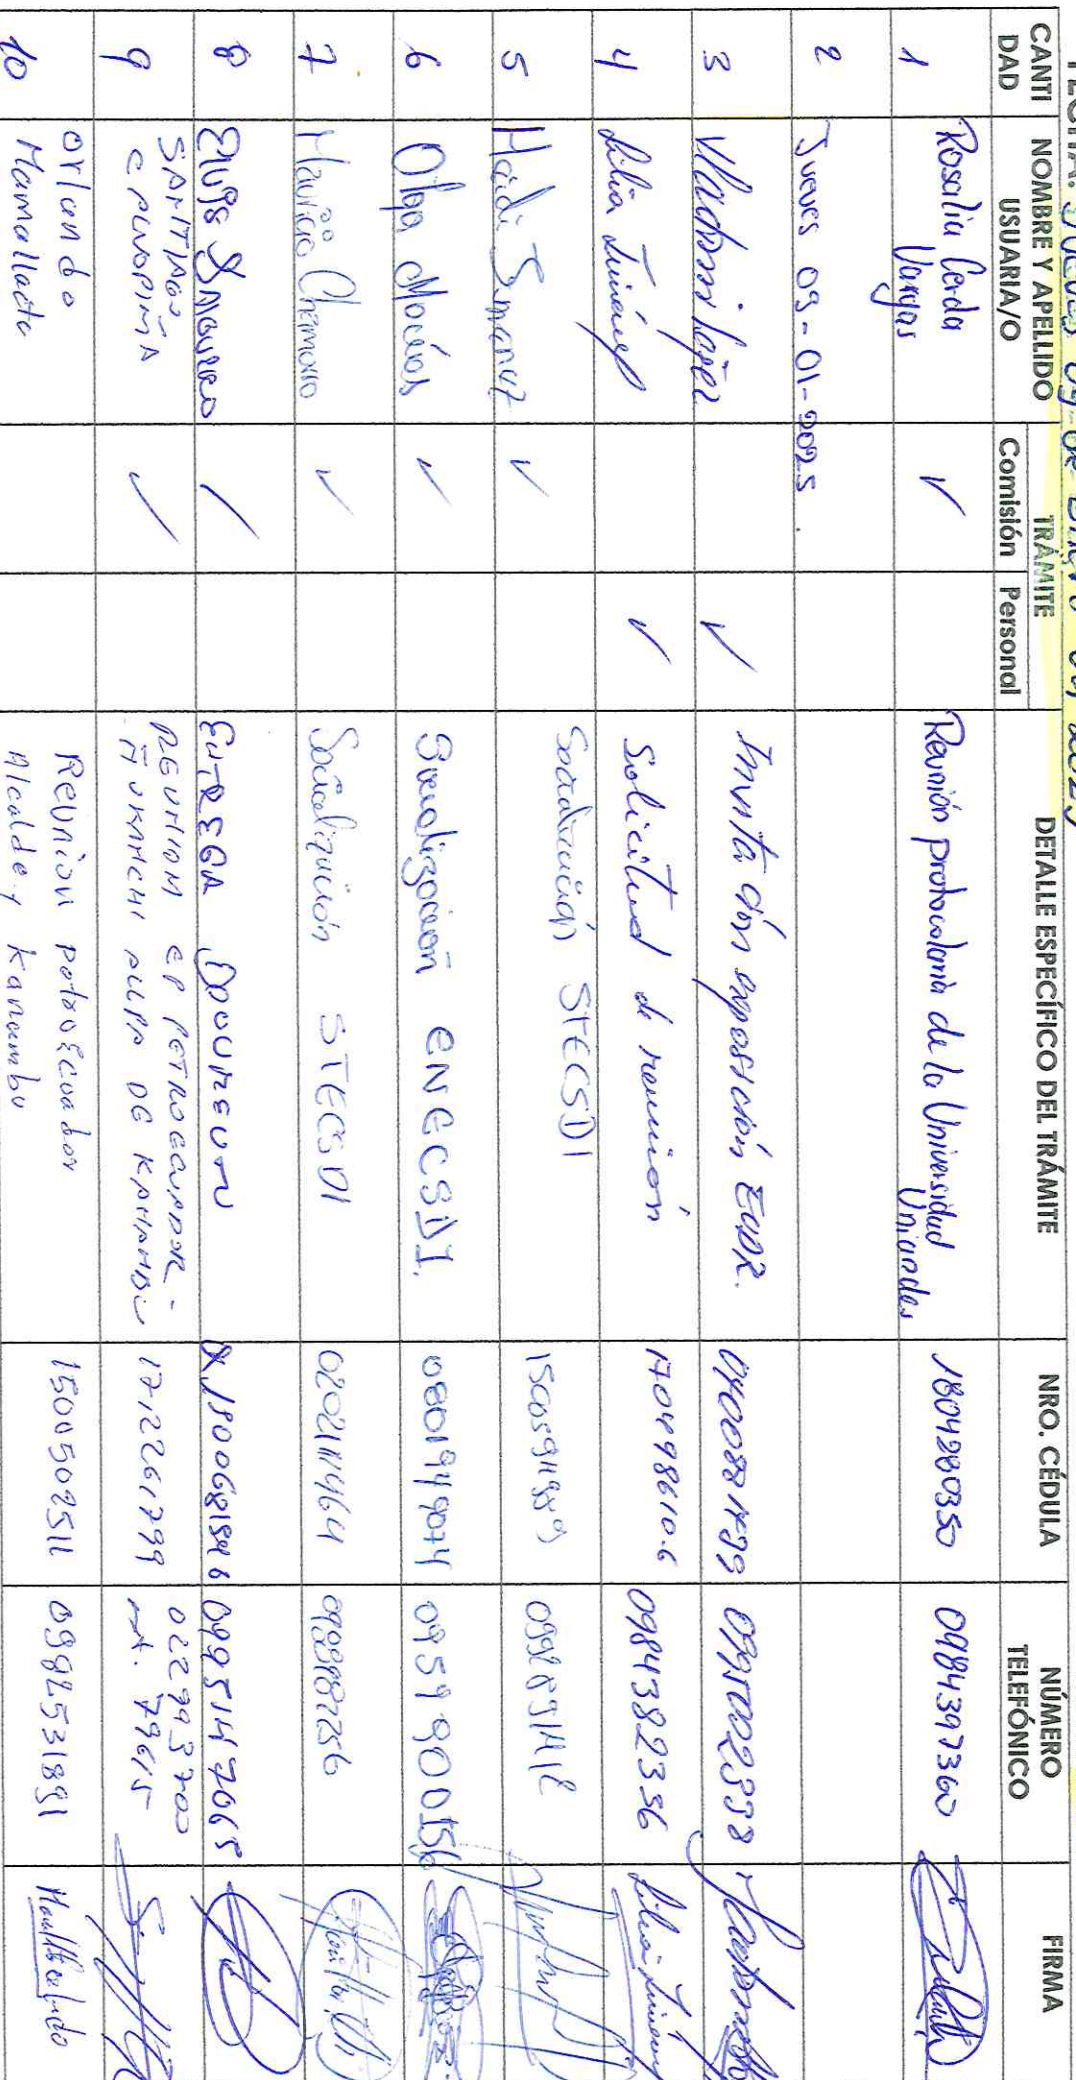 FECHA: Jueves 09-de Enero del 2025
CANTI DAD | NOMBRE Y APELLIDO USUARIA/O | TRÁMITE Comisión | Personal | DETALLE ESPECÍFICO DEL TRÁMITE | NRO. CÉDULA | NÚMERO TELEFÓNICO | FIRMA
1 Rosalia Cerda Vargas ✓ Reunión protocolaria de la Universidad Uniandes 1804280350 0984397360
2 Jueves 09-01-2025
3 Vladimir López ✓ Invita don exposición 0400881739
4 Lilia Jiménez ✓ Solicitud de reunión 170498610-6 0984382336 Lilia Jimenez
5 ✓ Socialización STECSDI
6 Olga Macías ✓ Socialización ENECSDI. 0801949074 0959900156
7 Mauricio Chamorro ✓ Socialización STECSDI 0202111464
8 ✓ 0995147065
9 SANTIAGO ✓ REUNION EP PETROECUADOR - ALLPA DE KANAMBU 1712261799 022993700 7965
10 Orlando Mamallacta Reunion petroecuador Alcalde y kanambu 1500502511 0982531891